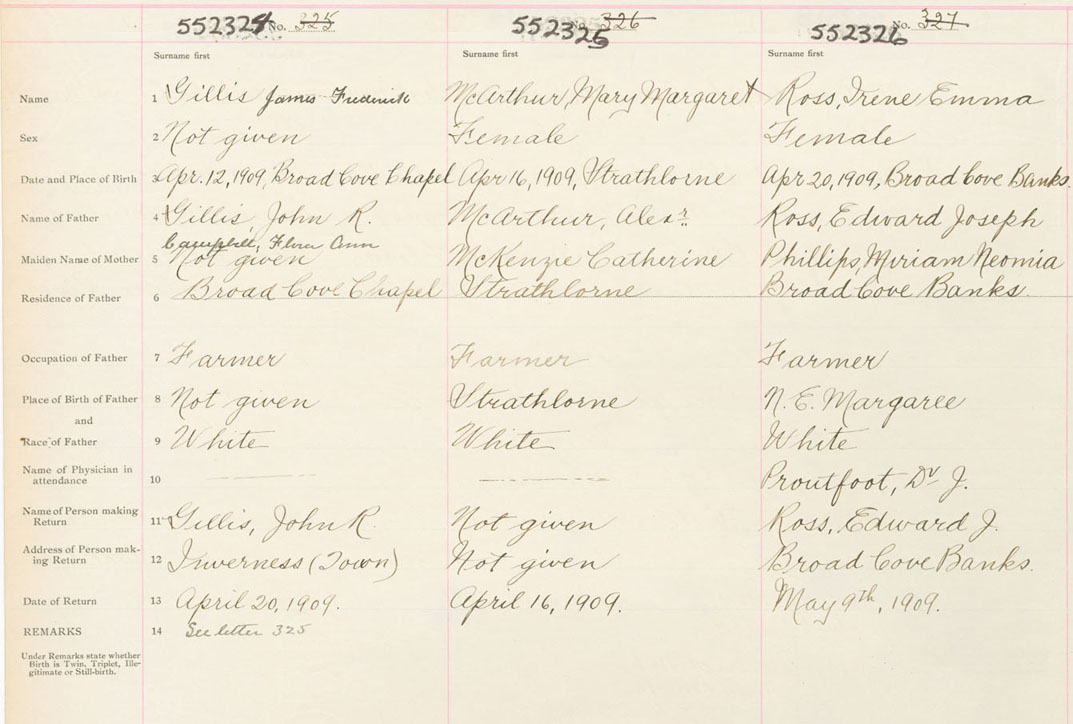 552324 No. 325 552325 326 552326 No. 327
Surname first Surname first Surname first
Name 1 Gillis James Frederick McArthur, Mary Margaret Ross, Irene Emma
Sex 2 Not given Female Female
Date and Place of Birth 3 Apr. 12, 1909, Broad Cove Chapel Apr 16, 1909, Strathlorne Apr 20, 1909, Broad Cove Banks.
Name of Father 4 Gillis, John R. McArthur, Alexr Ross, Edward Joseph
Campbell, Flora Ann
Maiden Name of Mother 5 Not given McKenzie Catherine Phillips, Miriam Neomia
Residence of Father 6 Broad Cove Chapel Strathlorne Broad Cove Banks.
Occupation of Father 7 Farmer Farmer Farmer
Place of Birth of Father 8 Not given Strathlorne N. E. Margaree
and
Race of Father 9 White White White
Name of Physician in
attendance 10 Proutfoot, Dr J.
Name of Person making
Return 11 Gillis, John R. Not given Ross, Edward J.
Address of Person mak-
ing Return 12 Inverness (Town) Not given Broad Cove Banks.
Date of Return 13 April 20, 1909. April 16, 1909. May 9th, 1909.
REMARKS 14 See letter 325
Under Remarks state whether
Birth is Twin, Triplet, Ille-
gitimate or Still-birth.